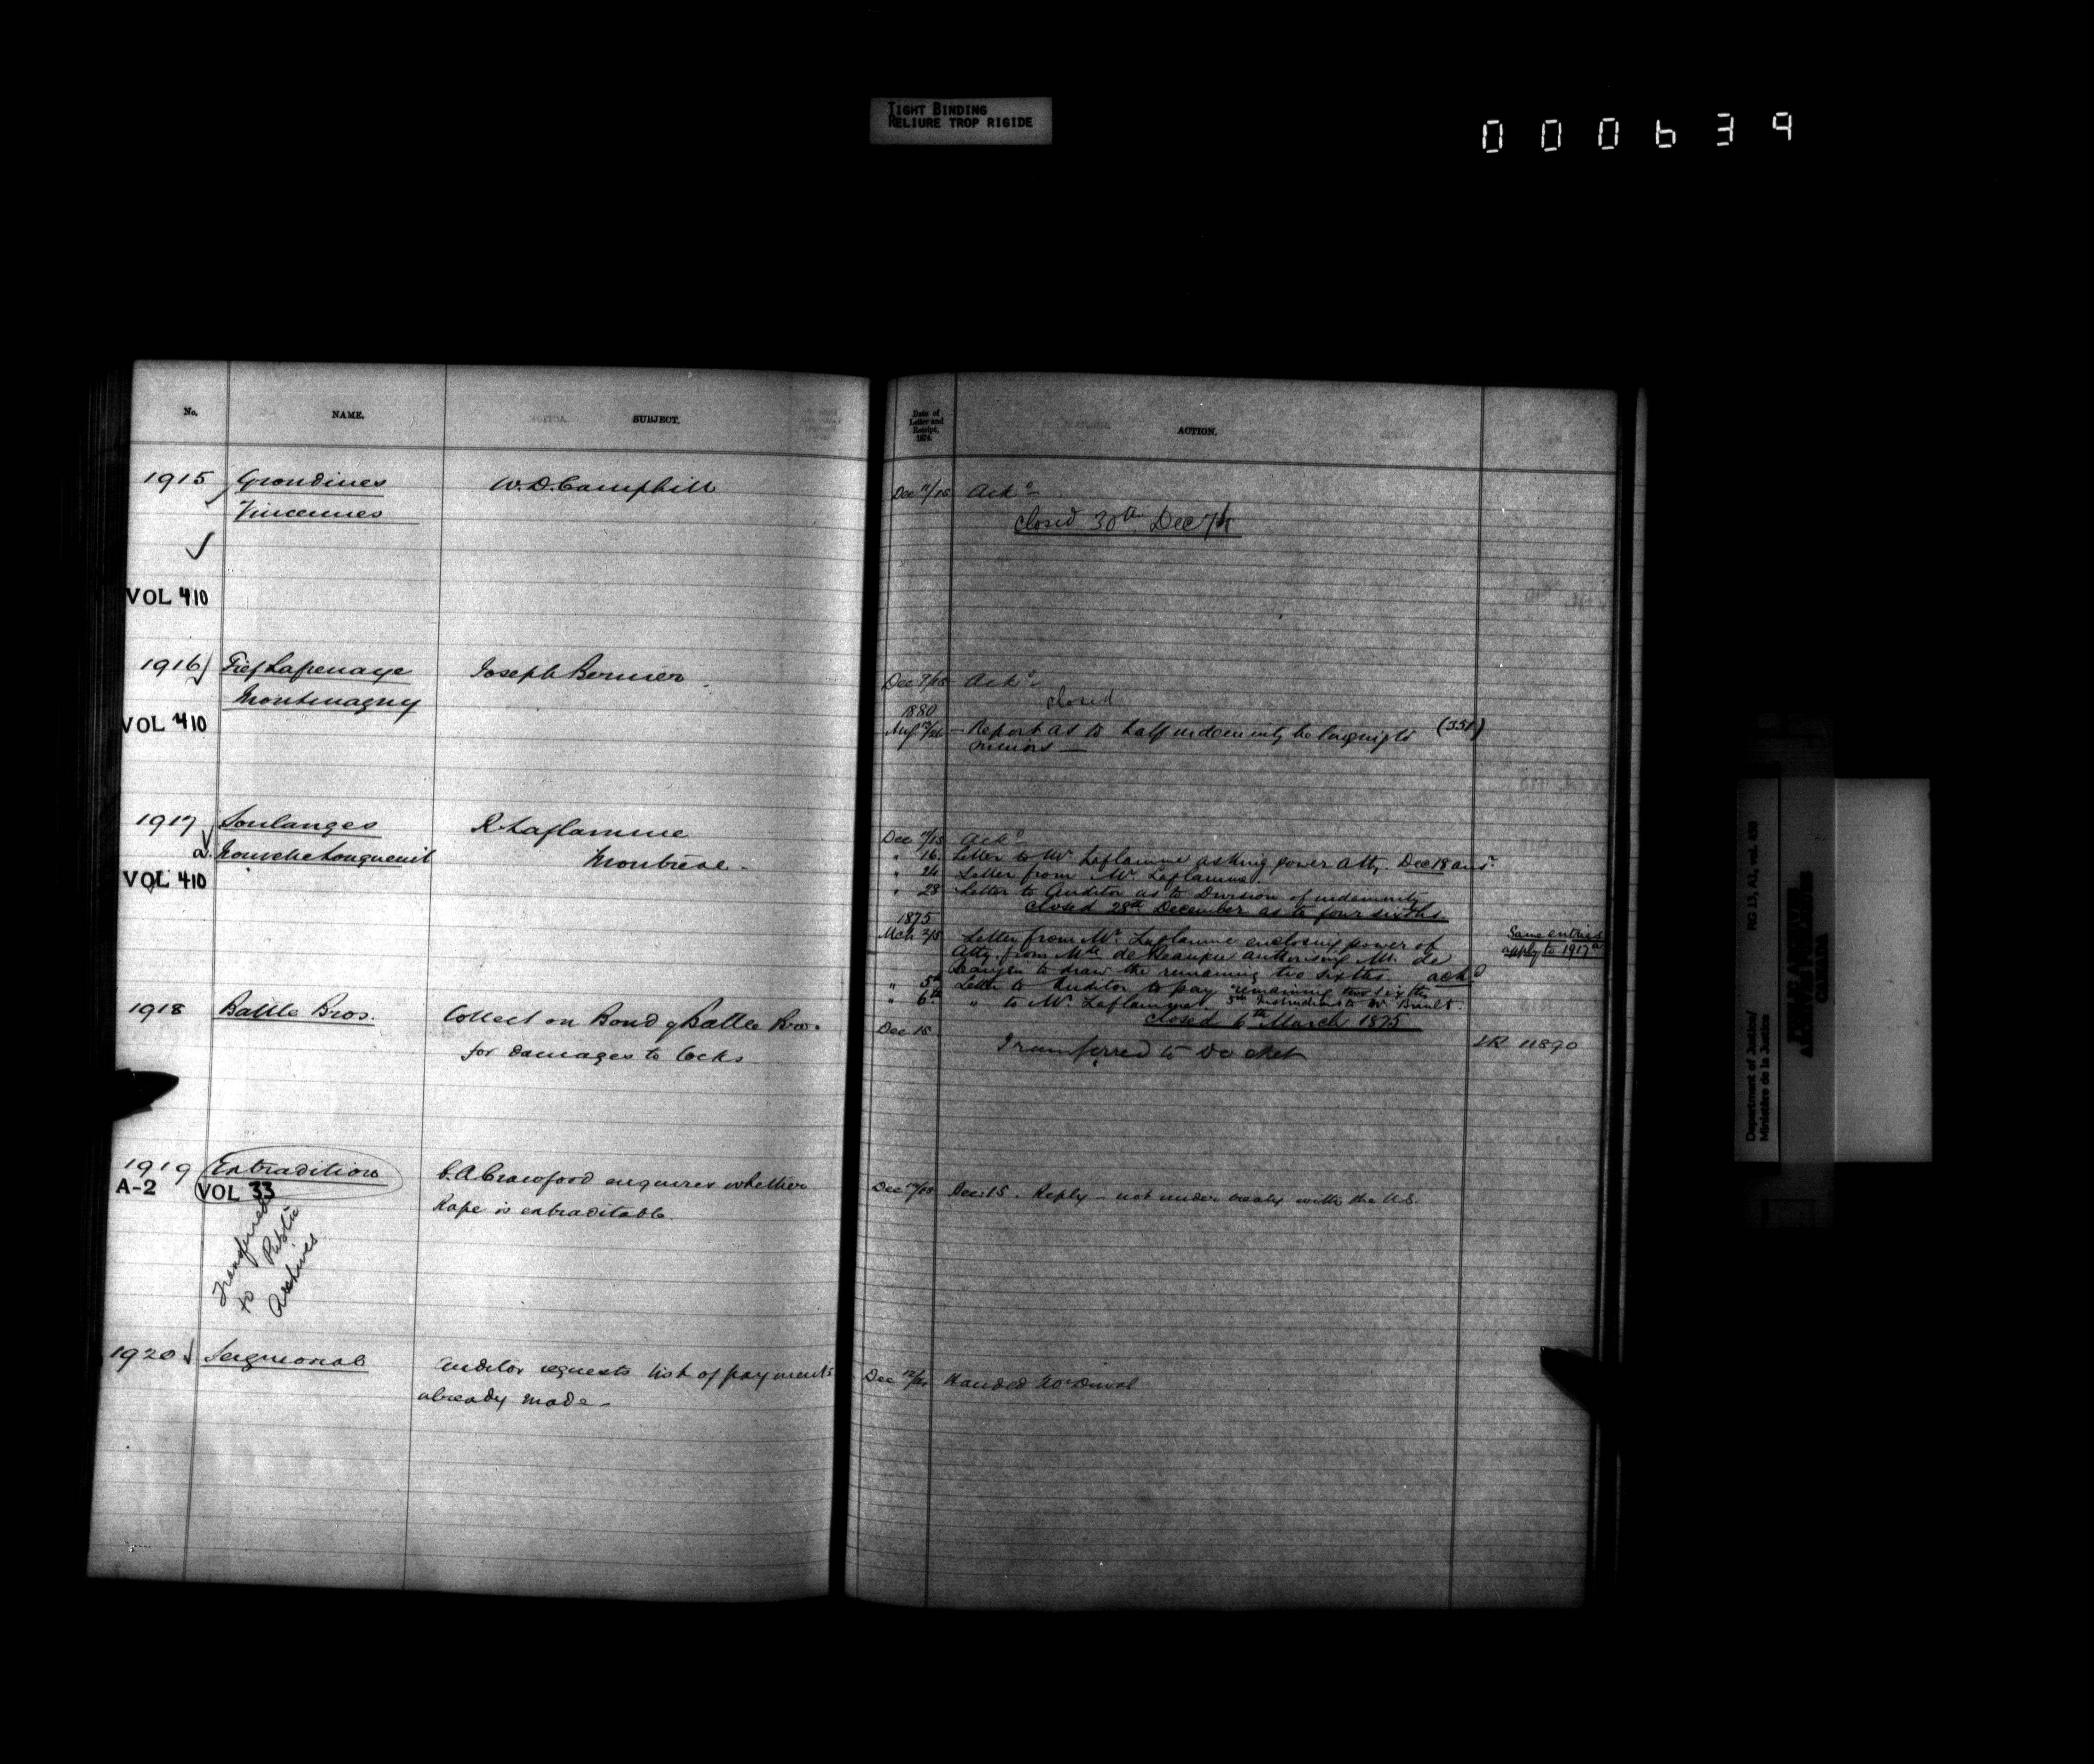 TIGHT BINDING
RELIURE TROP RIGIDE
000639
No. NAME. SUBJECT.
1915 Grondines W. D. Camphill
Vincennes
VOL 410
1916 Fief Lafrenaye Joseph Bernier
Montmagny
VOL 410
1917 Soulanges R. Laflamme
a. Nouvelle Longueuil Montreal -
VOL 410
1918 Battle Bros. Collect on Bond of Battle Bros.
for damages to locks
1919 Extradition C. A. Crawford enquires whether
A-2 VOL 33
Rape is extraditable.
Transferred
to Public
Archives
1920 Seignorial Auditor requests list of payments
already made -
Date of
Letter and
Receipt,
1874.
ACTION.
Dec 11/15 Ackd
closed 30th Dec 74
Dec 9/15 Ackd -
closed
1880
Report as to half indemnity belonging to (351)
minors -
Dec 11/15 Ackd
" 16. Letter to Mr Laflamme asking power atty. Dec 18 ansr.
" 24 Letter from Mr Laflamme.
" 28 Letter to Auditor as to Division of indemnity
closed 28th December as to four sixths
1875
Mch 2/5 Letter from Mr. Laflamme enclosing power of
Atty. from Mlle de Beaujeu authorising Mr. de
Beaujeu to draw the remaining two sixths ackd
Same entries
apply to 1917a
" 5th Letter to Auditor to pay remaining two sixths
" 6th " to Mr. Laflamme. 5th Instructions to Mr. Brault.
closed 6th March 1875
Dec 15
Transferred to Docket
Dec 15. Reply - not under treaty with the U.S.
Dec 12/14 Handed Mr Duval
RG 13, A2, vol. 450
Department of Justice/
Ministère de la Justice
PUBLIC ARCHIVES
ARCHIVES PUBLIQUES
CANADA